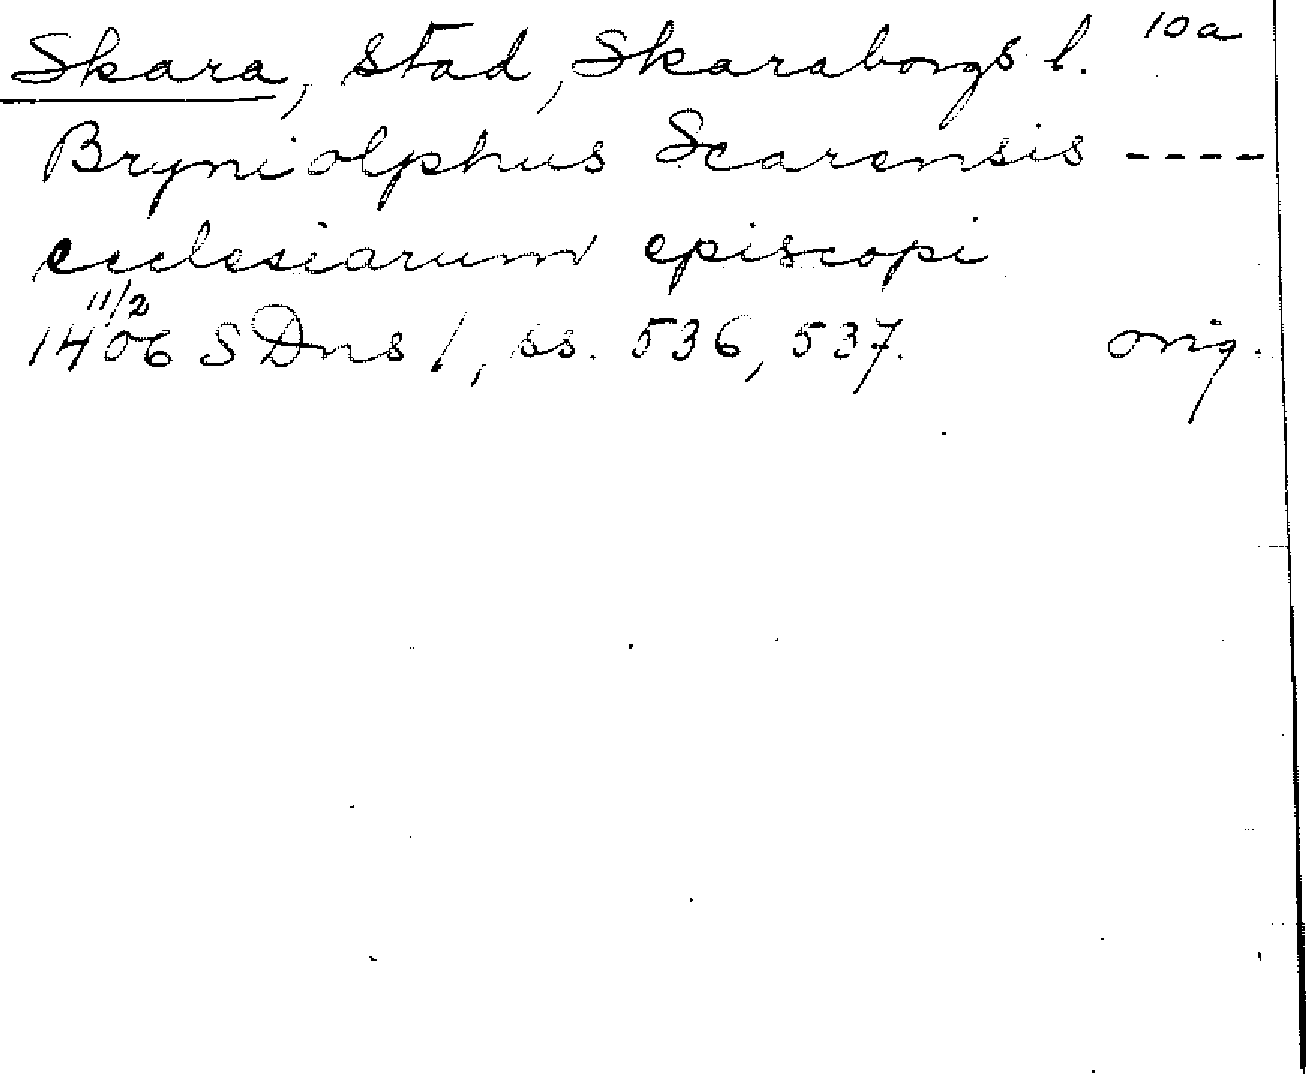 Skara, stad, Skaraborgs l. 10a
Bryniolphus Scarensis ----
ecclesiarum episcopi
11/2
1406 SDns 1, ss. 536, 537. orig.